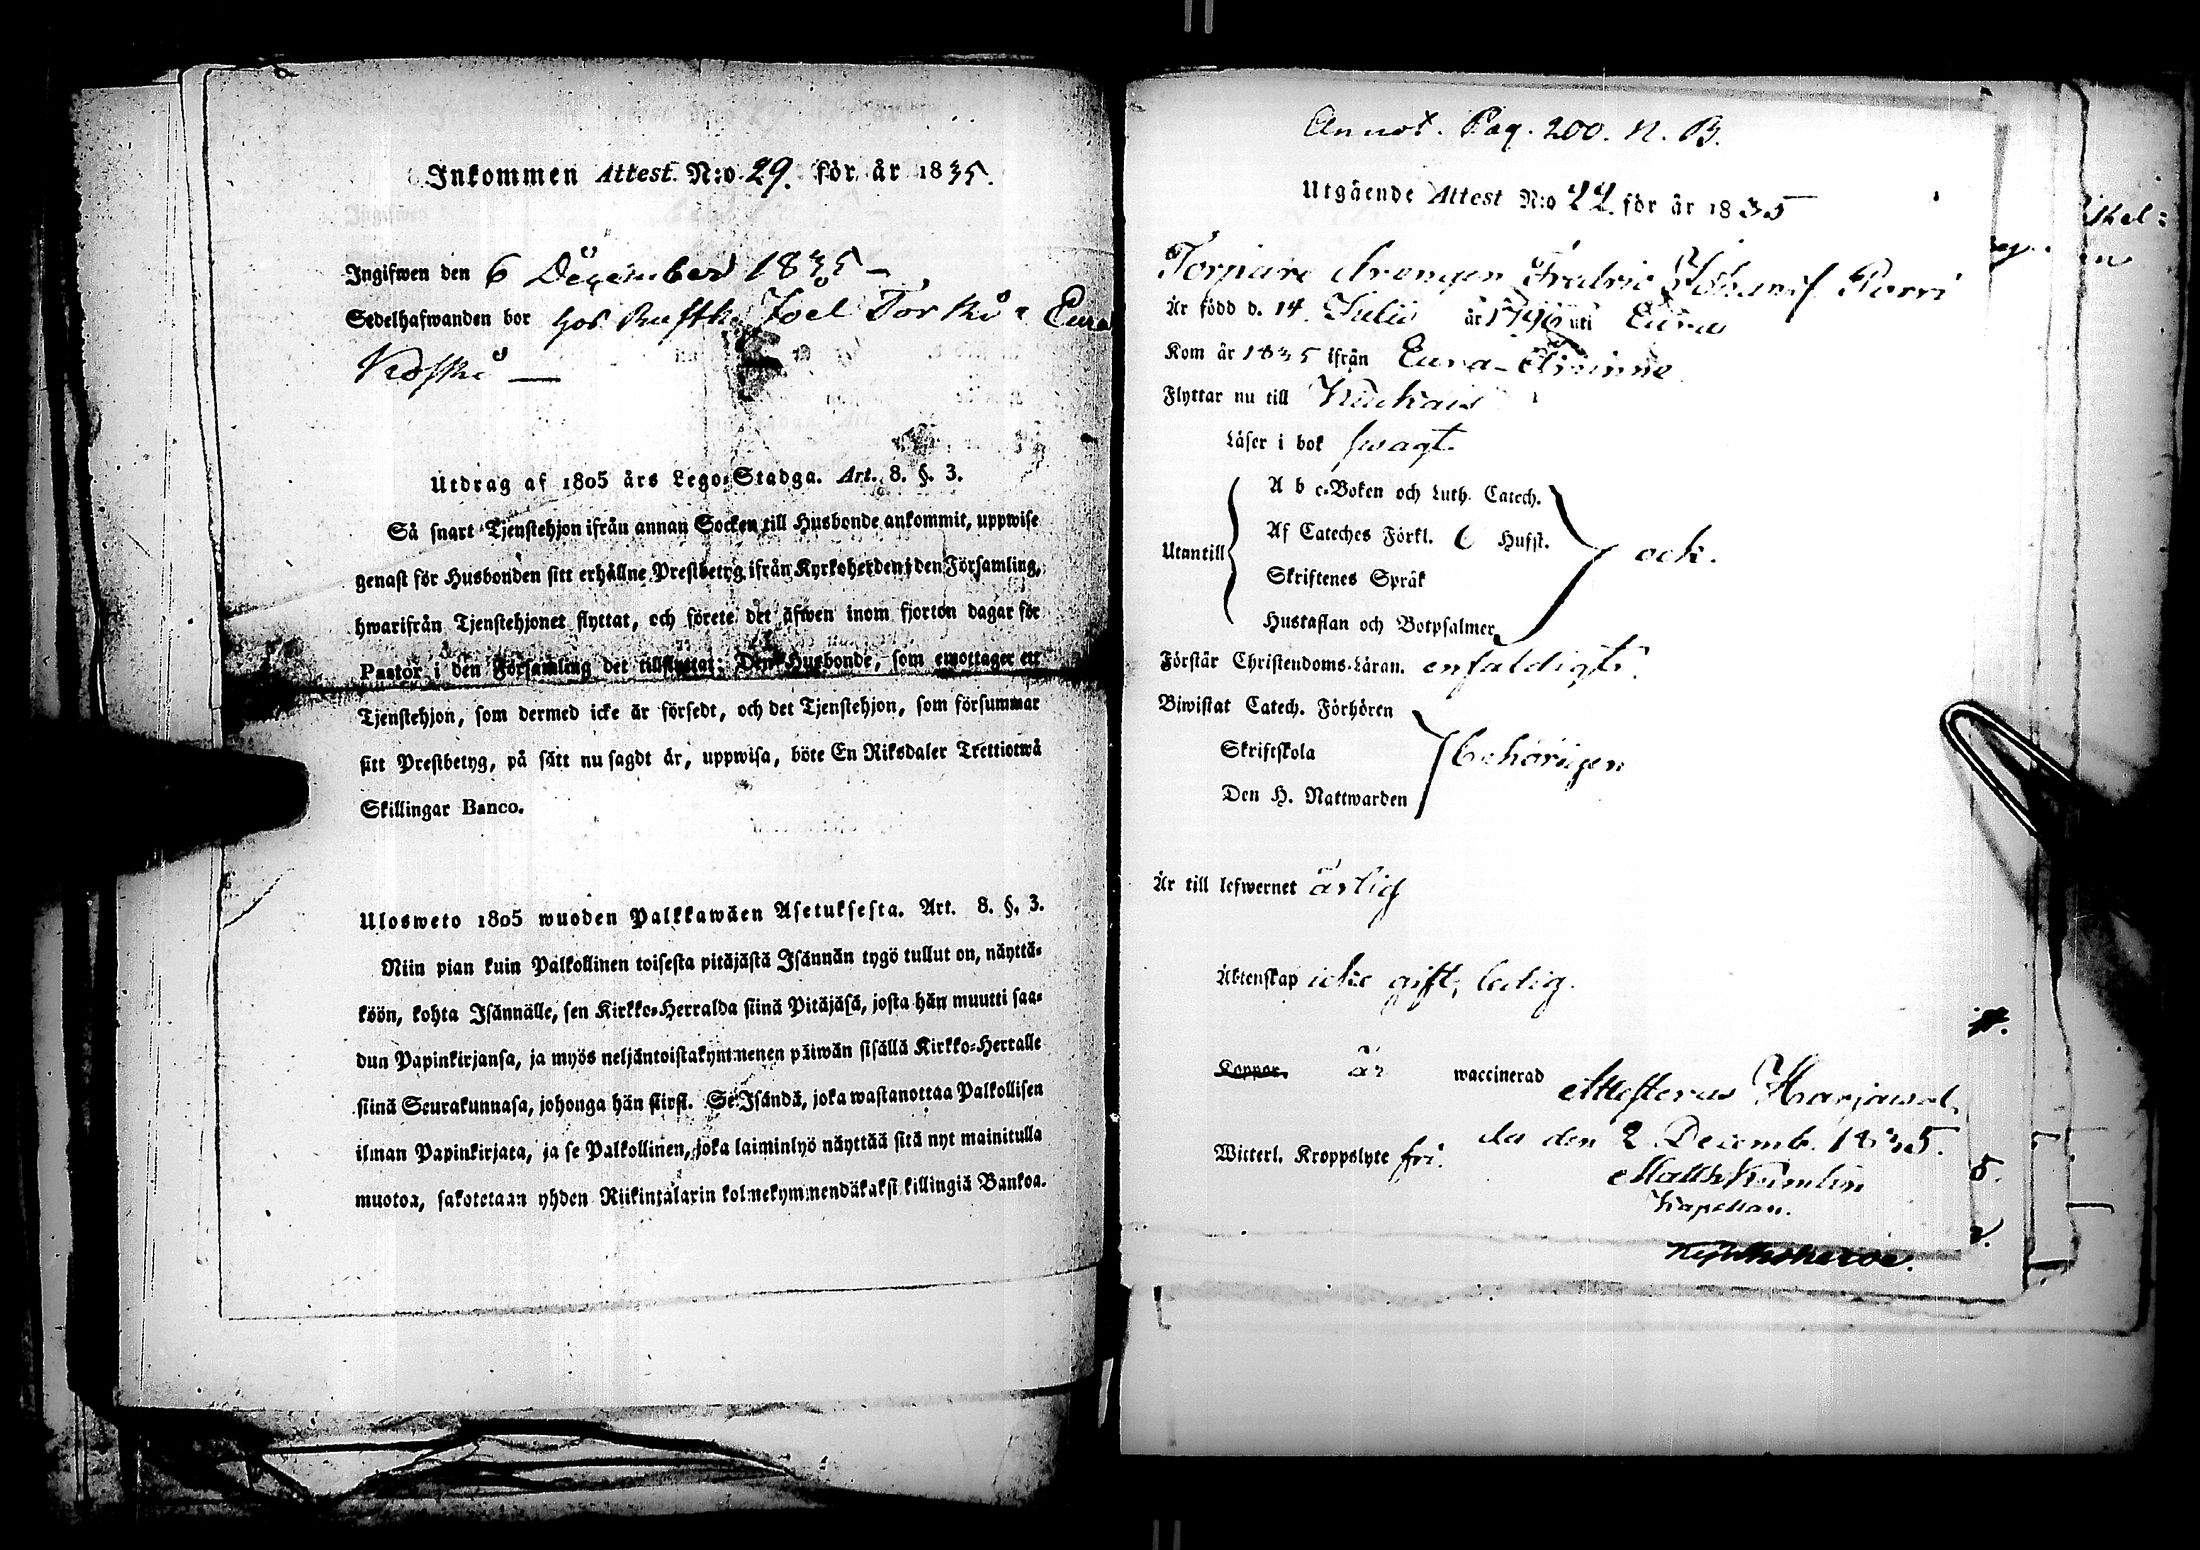 Inkommen Attest. N:o 29. för år 1835.
Ingifwen den 6 December 1835 —
Sedelhafwanden bor hos Rusth. Joel Torki i Eura
Koski —
Utdrag af 1805 års Lego-Stadga. Art. 8. §. 3.
Så snart Tjenstehjon ifrån annan Socken till Husbonde ankommit, uppwise
genast för Husbonden sitt erhållne Prestbetyg ifrån Kyrkoherden i den Församling,
hwarifrån Tjenstehjonet flyttat, och förete det äfwen inom fjorton dagar för
Pastor i den Församling det tillflyttat: Den Husbonde, som emottager ett
Tjenstehjon, som dermed icke är försedt, och det Tjenstehjon, som försummar
sitt Prestbetyg, på sätt nu sagdt är, uppwisa, böte En Riksdaler Trettiotwå
Skillingar Banco.
Ulosweto 1805 wuoden Palkkawäen Asetuksesta. Art. 8. §. 3.
Niin pian kuin Palkollinen toisesta pitäjästä Isännän tygö tullut on, näyttä-
köön, kohta Isännälle, sen Kirkko-Herralda siinä Pitäjäsä, josta hän muutti saa-
dun Papinkirjansa, ja myös neljäntoistakymmenen päiwän sisällä Kirkko-Herralle
siinä Seurakunnasa, johonga hän siirsi. Se Isändä, joka wastanottaa Palkollisen
ilman Papinkirjata, ja se Palkollinen, joka laiminlyö näyttää sitä nyt mainitulla
muotoa, sakotetaan yhden Riikintalarin kolmekymmendäkaksi killingiä Bankoa.
Annot. Pag. 200. N. B.
Utgående Attest N:o 22. för år 1835
Torpare drengen Fredric Johansf Porri
Är född d. 14 Julii år 1790 uti Eura
Kom år 1835 ifrån Eura-Kiminne
Flyttar nu till Kiukais
Läser i bok swagt
A b c-Boken och Luth. Catech.
Af Cateches Förkl. 6 Hufst.
Utantill ock.
Skriftenes Språk
Hustaflan och Botpsalmer
Förstår Christendoms-Läran. enfaldigt.
Biwistat Catech. Förhören
Skriftskola behörigen
Den H. Nattwarden
Är till lefwernet ärlig
Äktenskap icke gift, ledig.
Koppor. är waccinerad
Attesteras Harjawal-
la den 2 Decemb. 1835.
Witterl. Kroppslyte fri.
Matth Kumlin
Kapellan.